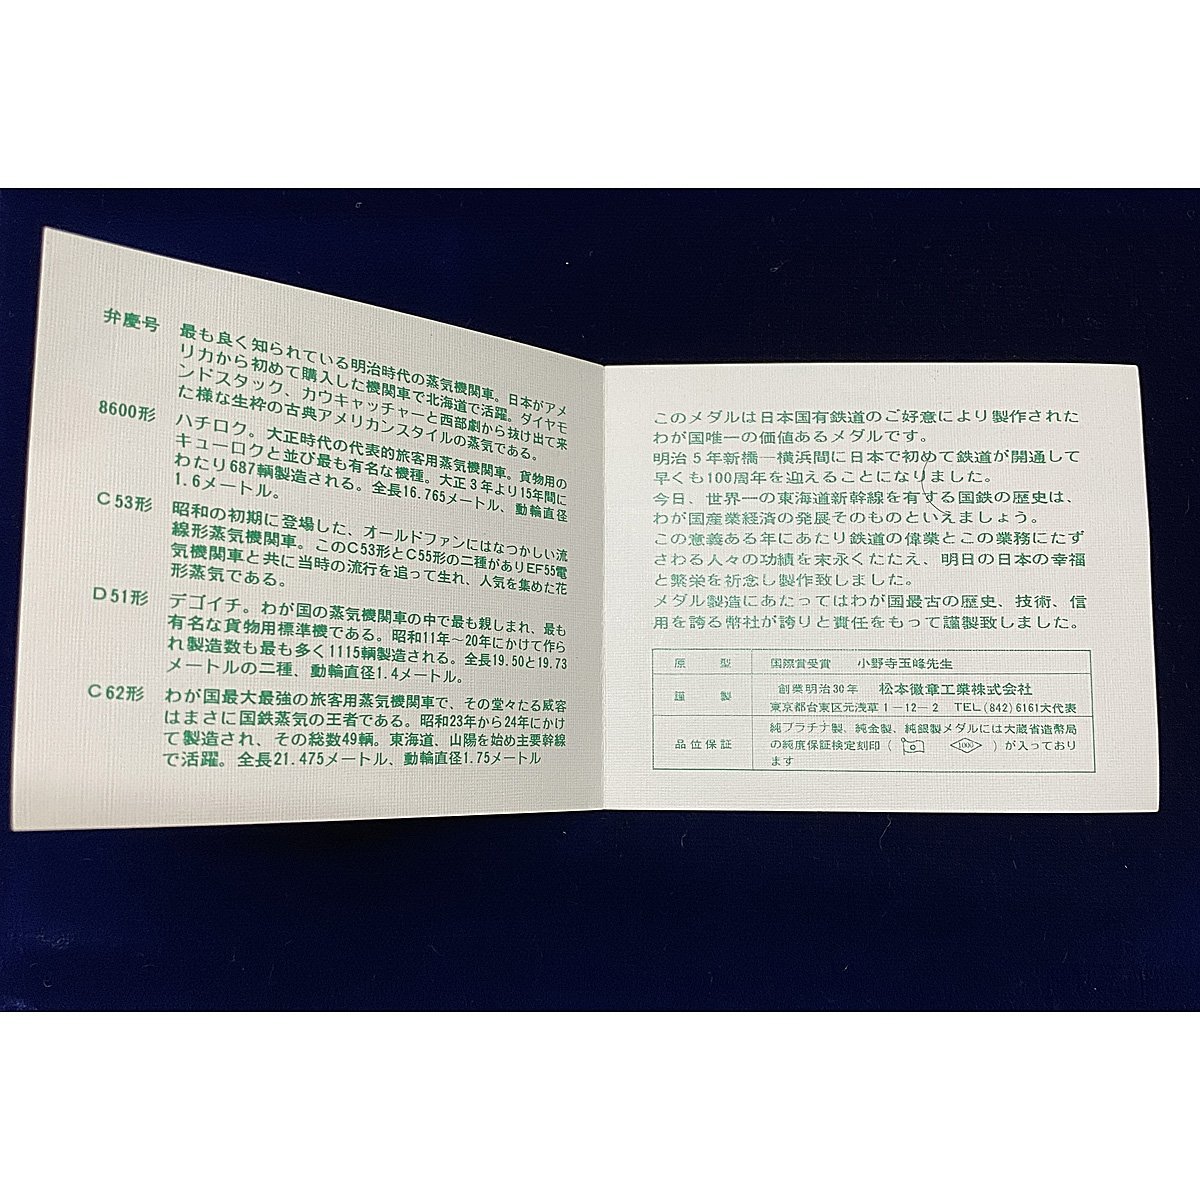 弁慶号 最も良く知られている明治時代の蒸気機関車。日本がアメ
リカから初めて購入した機関車で北海道で活躍。ダイヤモ
ンドスタック、カウキャッチャーと西部劇から抜け出て来
た様な生粋の古典アメリカンスタイルの蒸気である。
8600形 ハチロク。大正時代の代表的旅客用蒸気機関車。貨物用の
キューロクと並び最も有名な機種。大正3年より15年間に
わたり687輌製造される。全長16.765メートル、動輪直径
1.6メートル。
C53形 昭和の初期に登場した、オールドファンにはなつかしい流
線形蒸気機関車。このC53形とC55形の二種がありEF55電
気機関車と共に当時の流行を追って生れ、人気を集めた花
形蒸気である。
D51形 デゴイチ。わが国の蒸気機関車の中で最も親しまれ、最も
有名な貨物用標準機である。昭和11年～20年にかけて作ら
れ製造数も最も多く1115輌製造される。全長19.50と19.73
メートルの二種、動輪直径1.4メートル。
C62形 わが国最大最強の旅客用蒸気機関車で、その堂々たる威容
はまさに国鉄蒸気の王者である。昭和23年から24年にかけ
て製造され、その総数49輌。東海道、山陽を始め主要幹線
で活躍。全長21.475メートル、動輪直径1.75メートル
このメダルは日本国有鉄道のご好意により製作された
わが国唯一の価値あるメダルです。
明治5年新橋―横浜間に日本で初めて鉄道が開通して
早くも100周年を迎えることになりました。
今日、世界一の東海道新幹線を有する国鉄の歴史は、
わが国産業経済の発展そのものといえましょう。
この意義ある年にあたり鉄道の偉業とこの業務にたず
さわる人々の功績を末永くたたえ、明日の日本の幸福
と繁栄を祈念し製作致しました。
メダル製造にあたってはわが国最古の歴史、技術、信
用を誇る幣社が誇りと責任をもって謹製致しました。
原型 国際賞受賞 小野寺玉峰先生
謹製 創業明治30年 松本徽章工業株式会社
東京都台東区元浅草1－12－2 TEL(842)6161大代表
品位保証 純プラチナ製、純金製、純銀製メダルには大蔵省造幣局
の純度保証検定刻印（ 1000 ）が入っており
ます